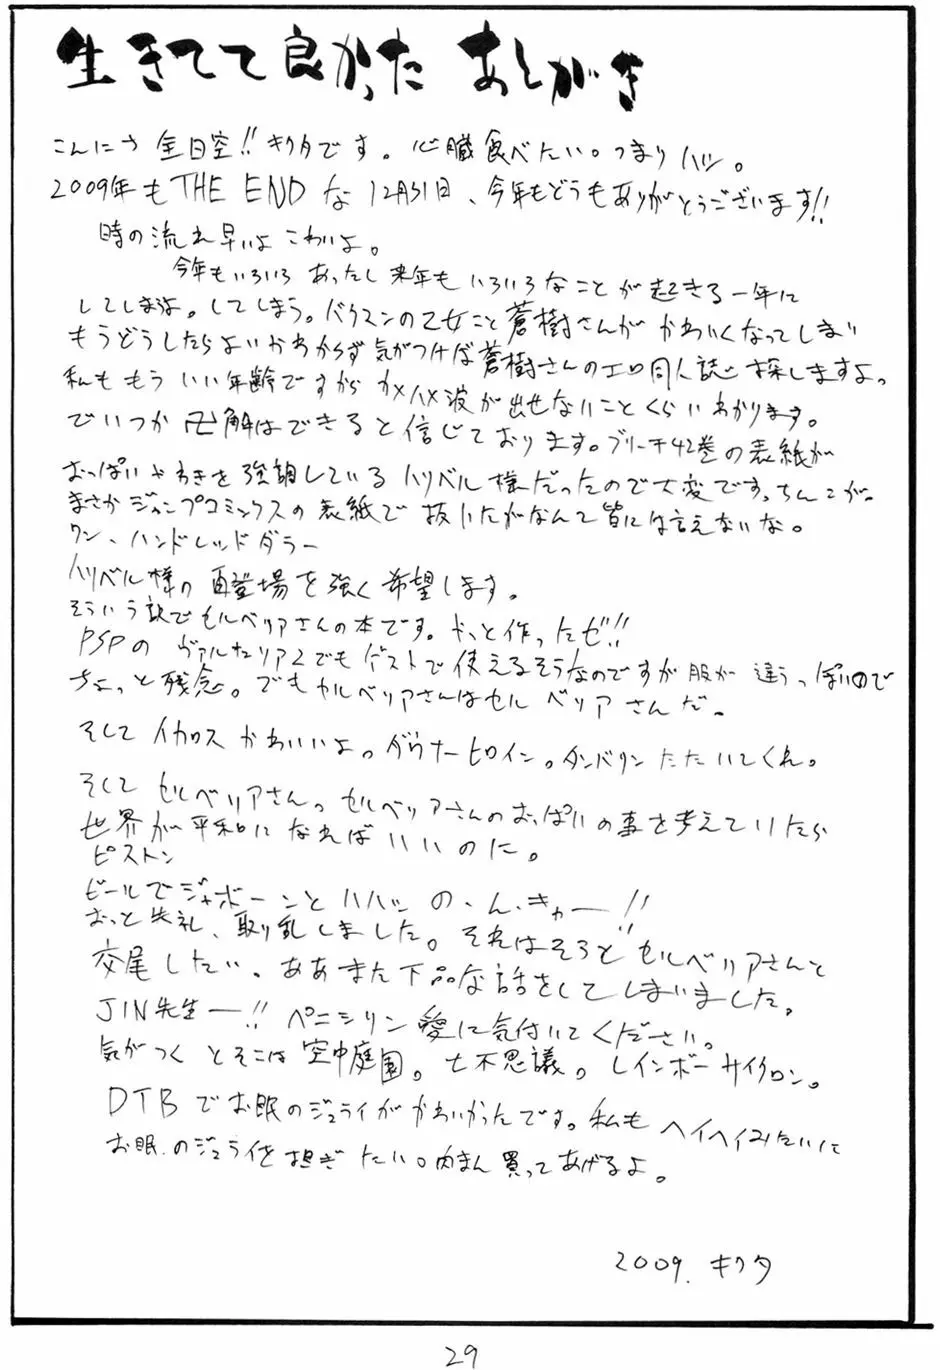 生きてて良かった あとがき
こんにち 全日空!! キクタです。心臓食べたい。つまりハツ。
2009年も THE END な 12月31日、今年もどうもありがとうございます!!
時の流れ早いよ こわいよ。
今年もいろいろ あったし来年も いろいろなことが起きる一年に
してしまうよ。してしまう。バクマンの乙女こと蒼樹さんが かわいくなってしまい
もうどうしたらよいかわからず気がつけば蒼樹さんのエロ同人誌を探しますよ。
私ももう いい年齢ですから カメハメ波が出せないことくらいわかります。
でいつか 卍解はできると信じております。ブリーチ42巻の表紙が
おっぱいやわきを強調している ハリベル様だったので大変です。ちんこが。
まさかジャンプコミックスの表紙で 抜いたがなんて皆には言えないな。
ワン、ハンドレッドダラー
ハリベル様の再登場を強く希望します。
そういう訳でセルベリアさんの本です。やっと作ったぜ!!
PSPの ヴァルキュリア2でもゲストで使えるそうなのですが服が 違うっぽいので
ちょっと残念。でもセルベリアさんはセルベリアさんだ。
そして イカロス かわいいよ。ダウナーヒロイン。タンバリン たたいてくれ。
そして セルベリアさん。セルベリアさんのおっぱいの事を考えていたら
世界が平和になればいいのに。
ピストン
ビールでジャボーンとハハッ の、ん、きゃー!!
おっと失礼、取り乱しました。それはそうとセルベリアさんと
交尾したい。ああまた下品な話をしてしまいました。
JIN先生ー!! ペニシリン 愛に気付いてください。
気がつくとそこは 空中庭園。七不思議。レインボーサイクロン。
DTBでお眠のジュライがかわいかったです。私も ヘイヘイみたいに
お眠のジュライを担ぎたい。肉まん買ってあげるよ。
2009. キクタ
29